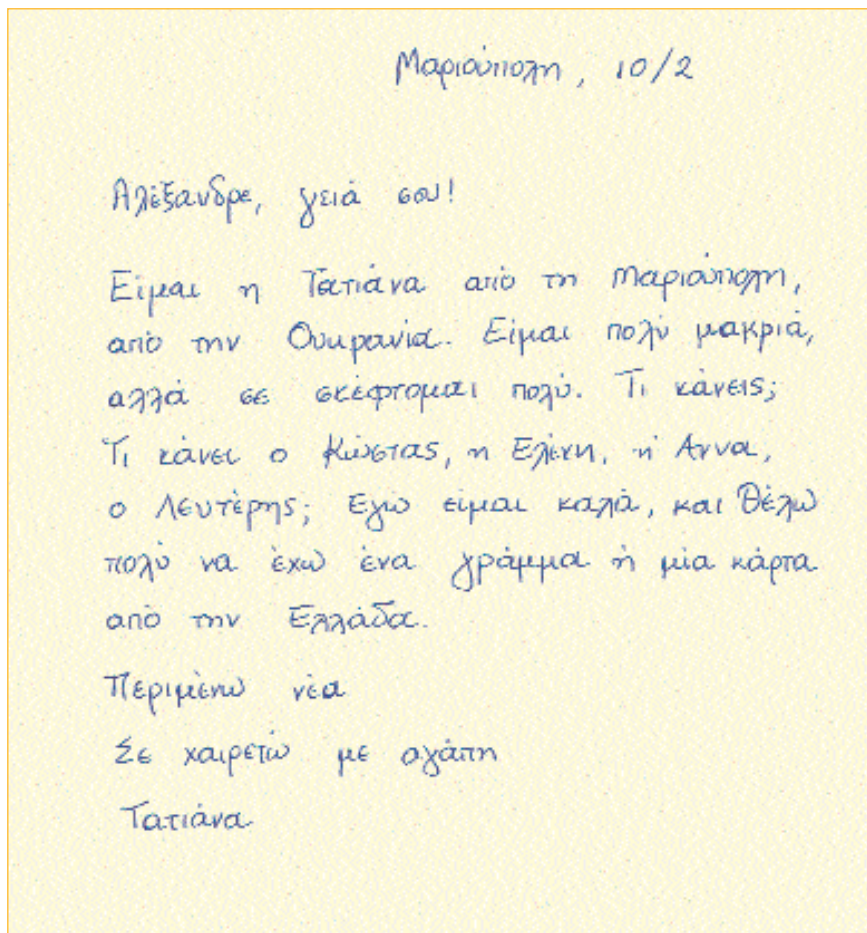 Μαριούπολη, 10/2
Αλέξανδρε, γειά σου!
Είμαι η Τατιάνα από τη Μαριούπολη,
από την Ουκρανία. Είμαι πολύ μακριά,
αλλά σε σκέφτομαι πολύ. Τι κάνεις;
Τι κάνει ο Κώστας, η Ελένη, η Άννα,
ο Λευτέρης; Εγώ είμαι καλά, και θέλω
πολύ να έχω ένα γράμμα ή μία κάρτα
από την Ελλάδα.
Περιμένω νέα
Σε χαιρετώ με αγάπη
Τατιάνα